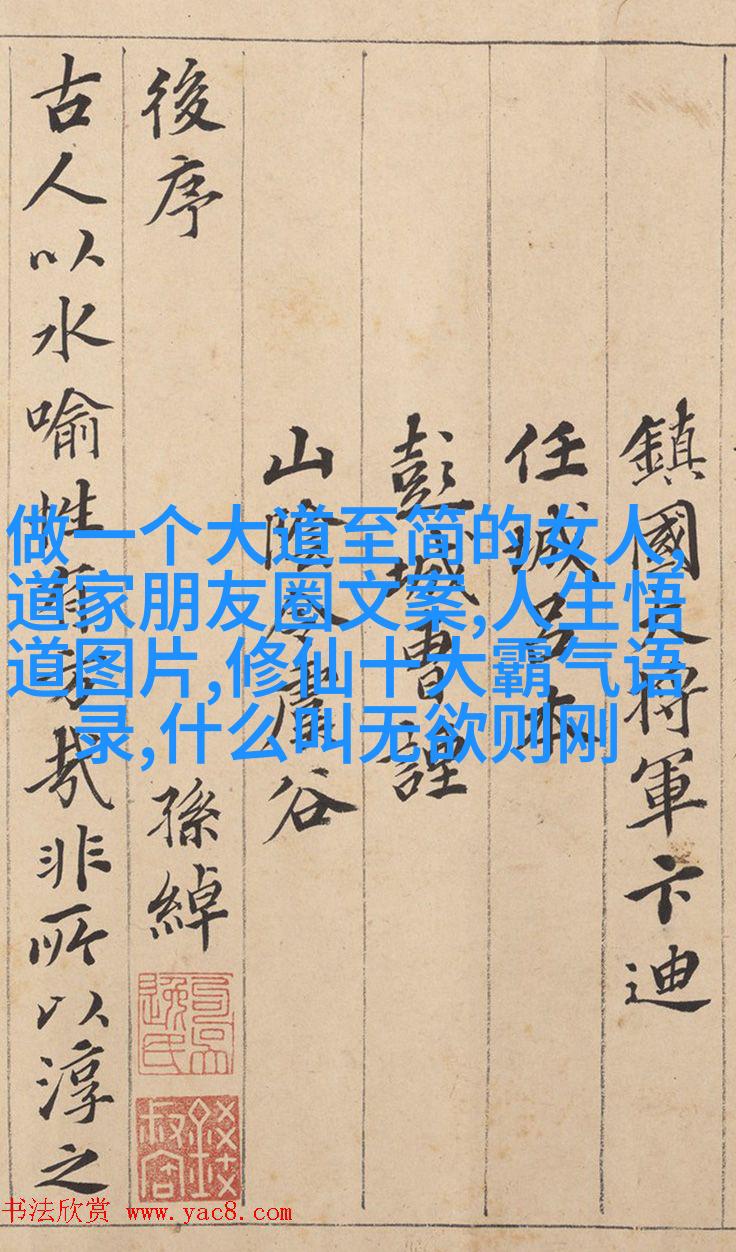 鎮國大將軍卞迪
任城呂本
彭城曹諲
山陰令虞谷
後序
孫綽
古人以水喻性有旨哉非所以淳之
做一个大道至简的女人,
道家朋友圈文案,人生悟
道图片,修仙十大霸气语
录,什么叫无欲则刚
书法欣赏 www.yac8.com